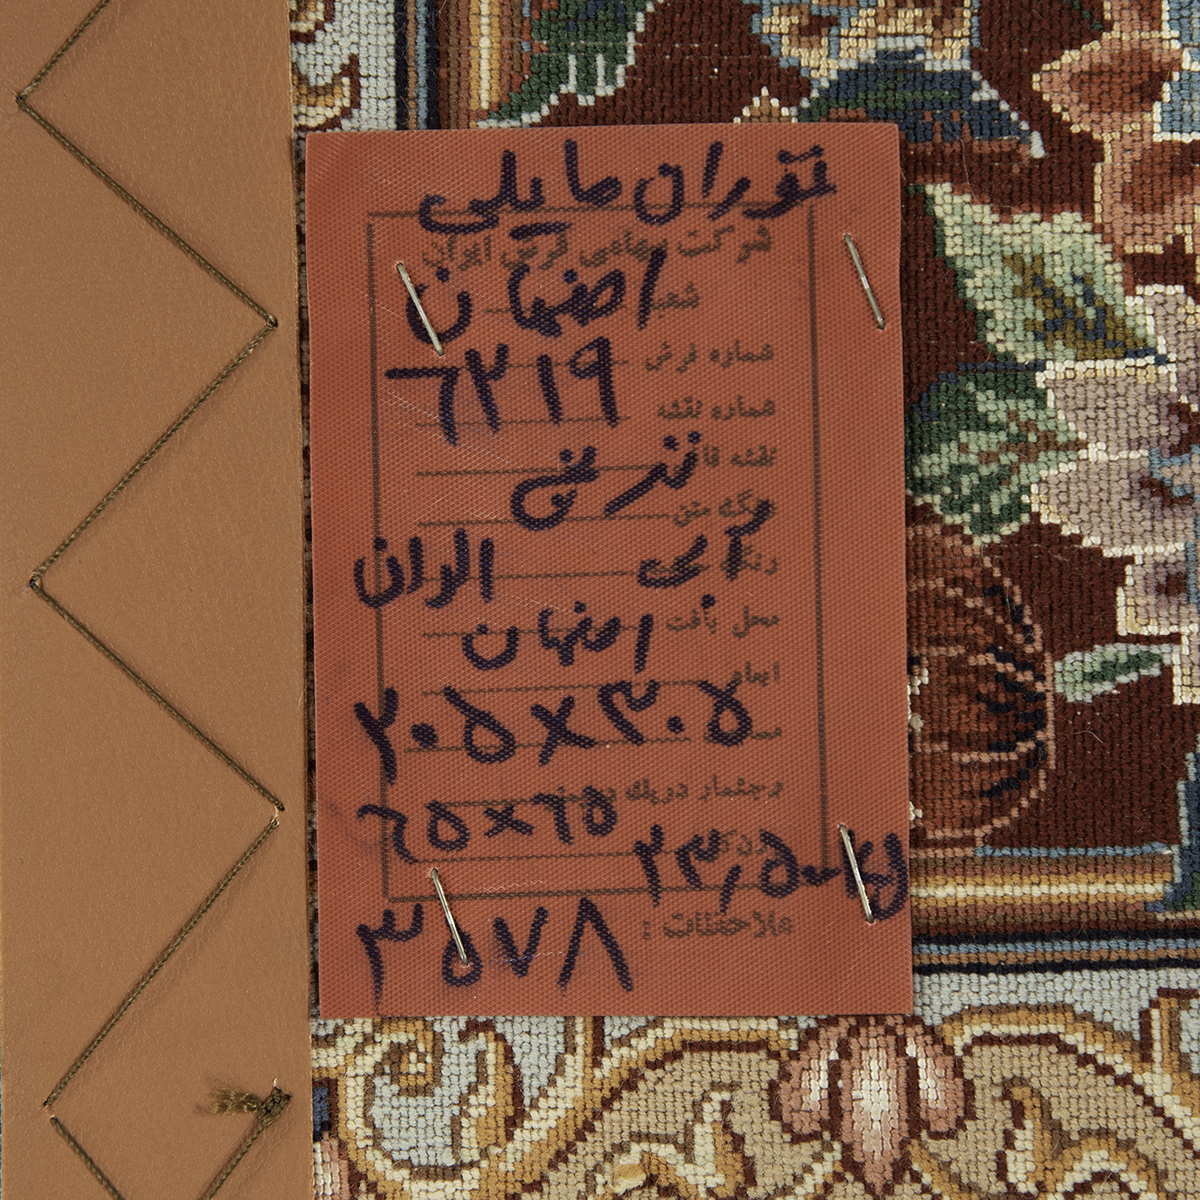 توران مایلی
شرکت سهامی فرش ایران
اصفهان
شعبه
شماره فرش
۶۲۱۹
شماره نقشه
نقشه
رنگ متن
آبی الوان
رنگ
محل بافت اصفهان
ابعاد
۲۰۵×۳۰۵
رجشمار دریک
۶۵×۶۵
۲۳,۵۰۰ kg
ملاحظات :
۳۵۷۸